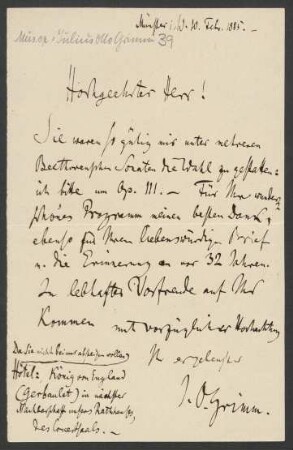 Münster i/W. 10. Febr. 1885.
Musex: Julius Otto Grimm 39
Hochgeehrter Herr!
Sie waren so gütig mir unter mehreren
Beethovenschen Sonaten die Wahl zu gestatten:
ich bitte um Op. 111. – Für Ihr wunder-
schönes Programm meinen besten Dank,
ebenso für Ihren liebenswürdigen Brief
u. die Erinnerung an vor 32 Jahren.
In lebhafter Vorfreude auf Ihr
Kommen mit vorzüglicher Hochachtung
Ihr ergebenster
J. O. Grimm.
Da Sie nicht bei uns absteigen wollen,
Hôtel: König von England
(Gerbaulet) in nächster
Nachbarschaft unseres Rathhauses,
des Concertsaals. –